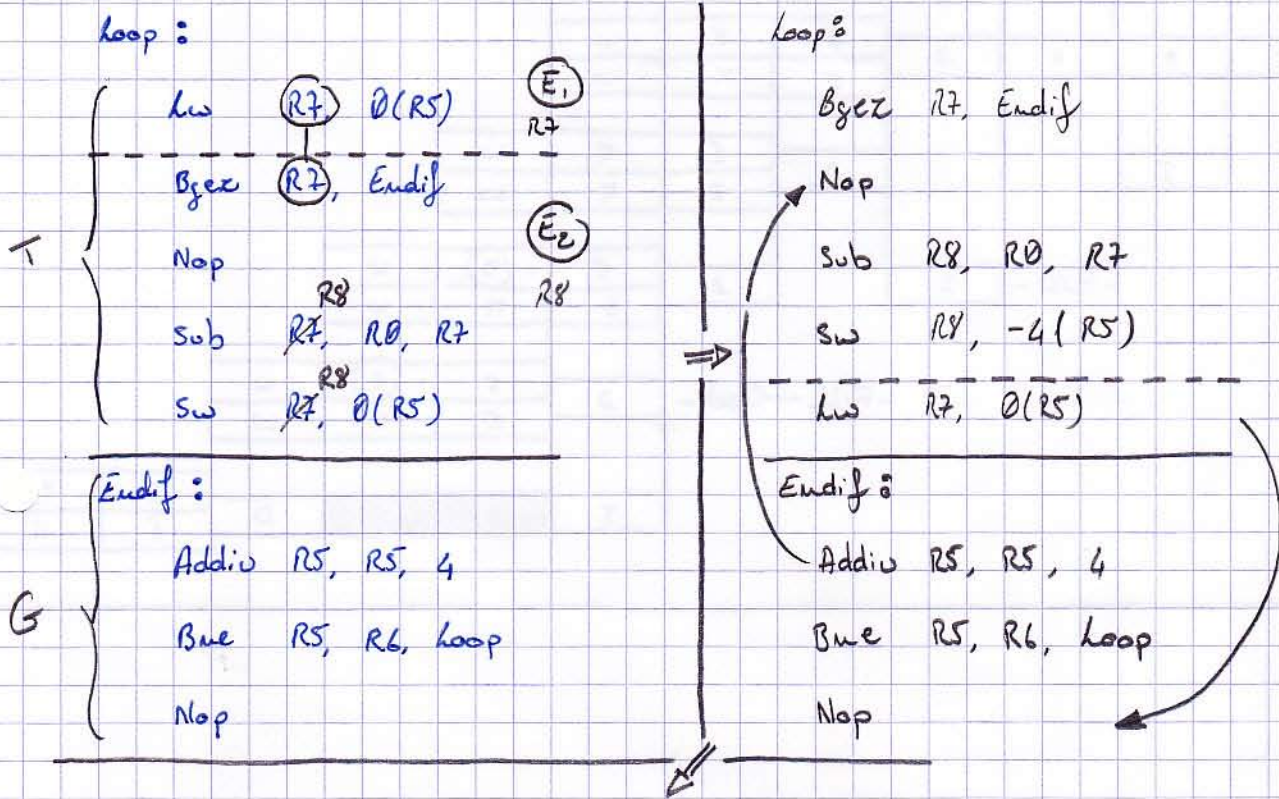 Loop :
T
Lw R7, 0(R5) E1
R7
Bgez R7, Endif
Nop E2
R8 R8
Sub R7, R0, R7
R8
Sw R7, 0(R5)
G
Endif :
Addiu R5, R5, 4
Bne R5, R6, Loop
Nop
⇒
Loop :
Bgez R7, Endif
Nop
Sub R8, R0, R7
Sw R8, -4(R5)
Lw R7, 0(R5)
Endif :
Addiu R5, R5, 4
Bne R5, R6, Loop
Nop